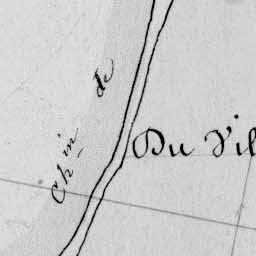 Ch.in de
Du Vil